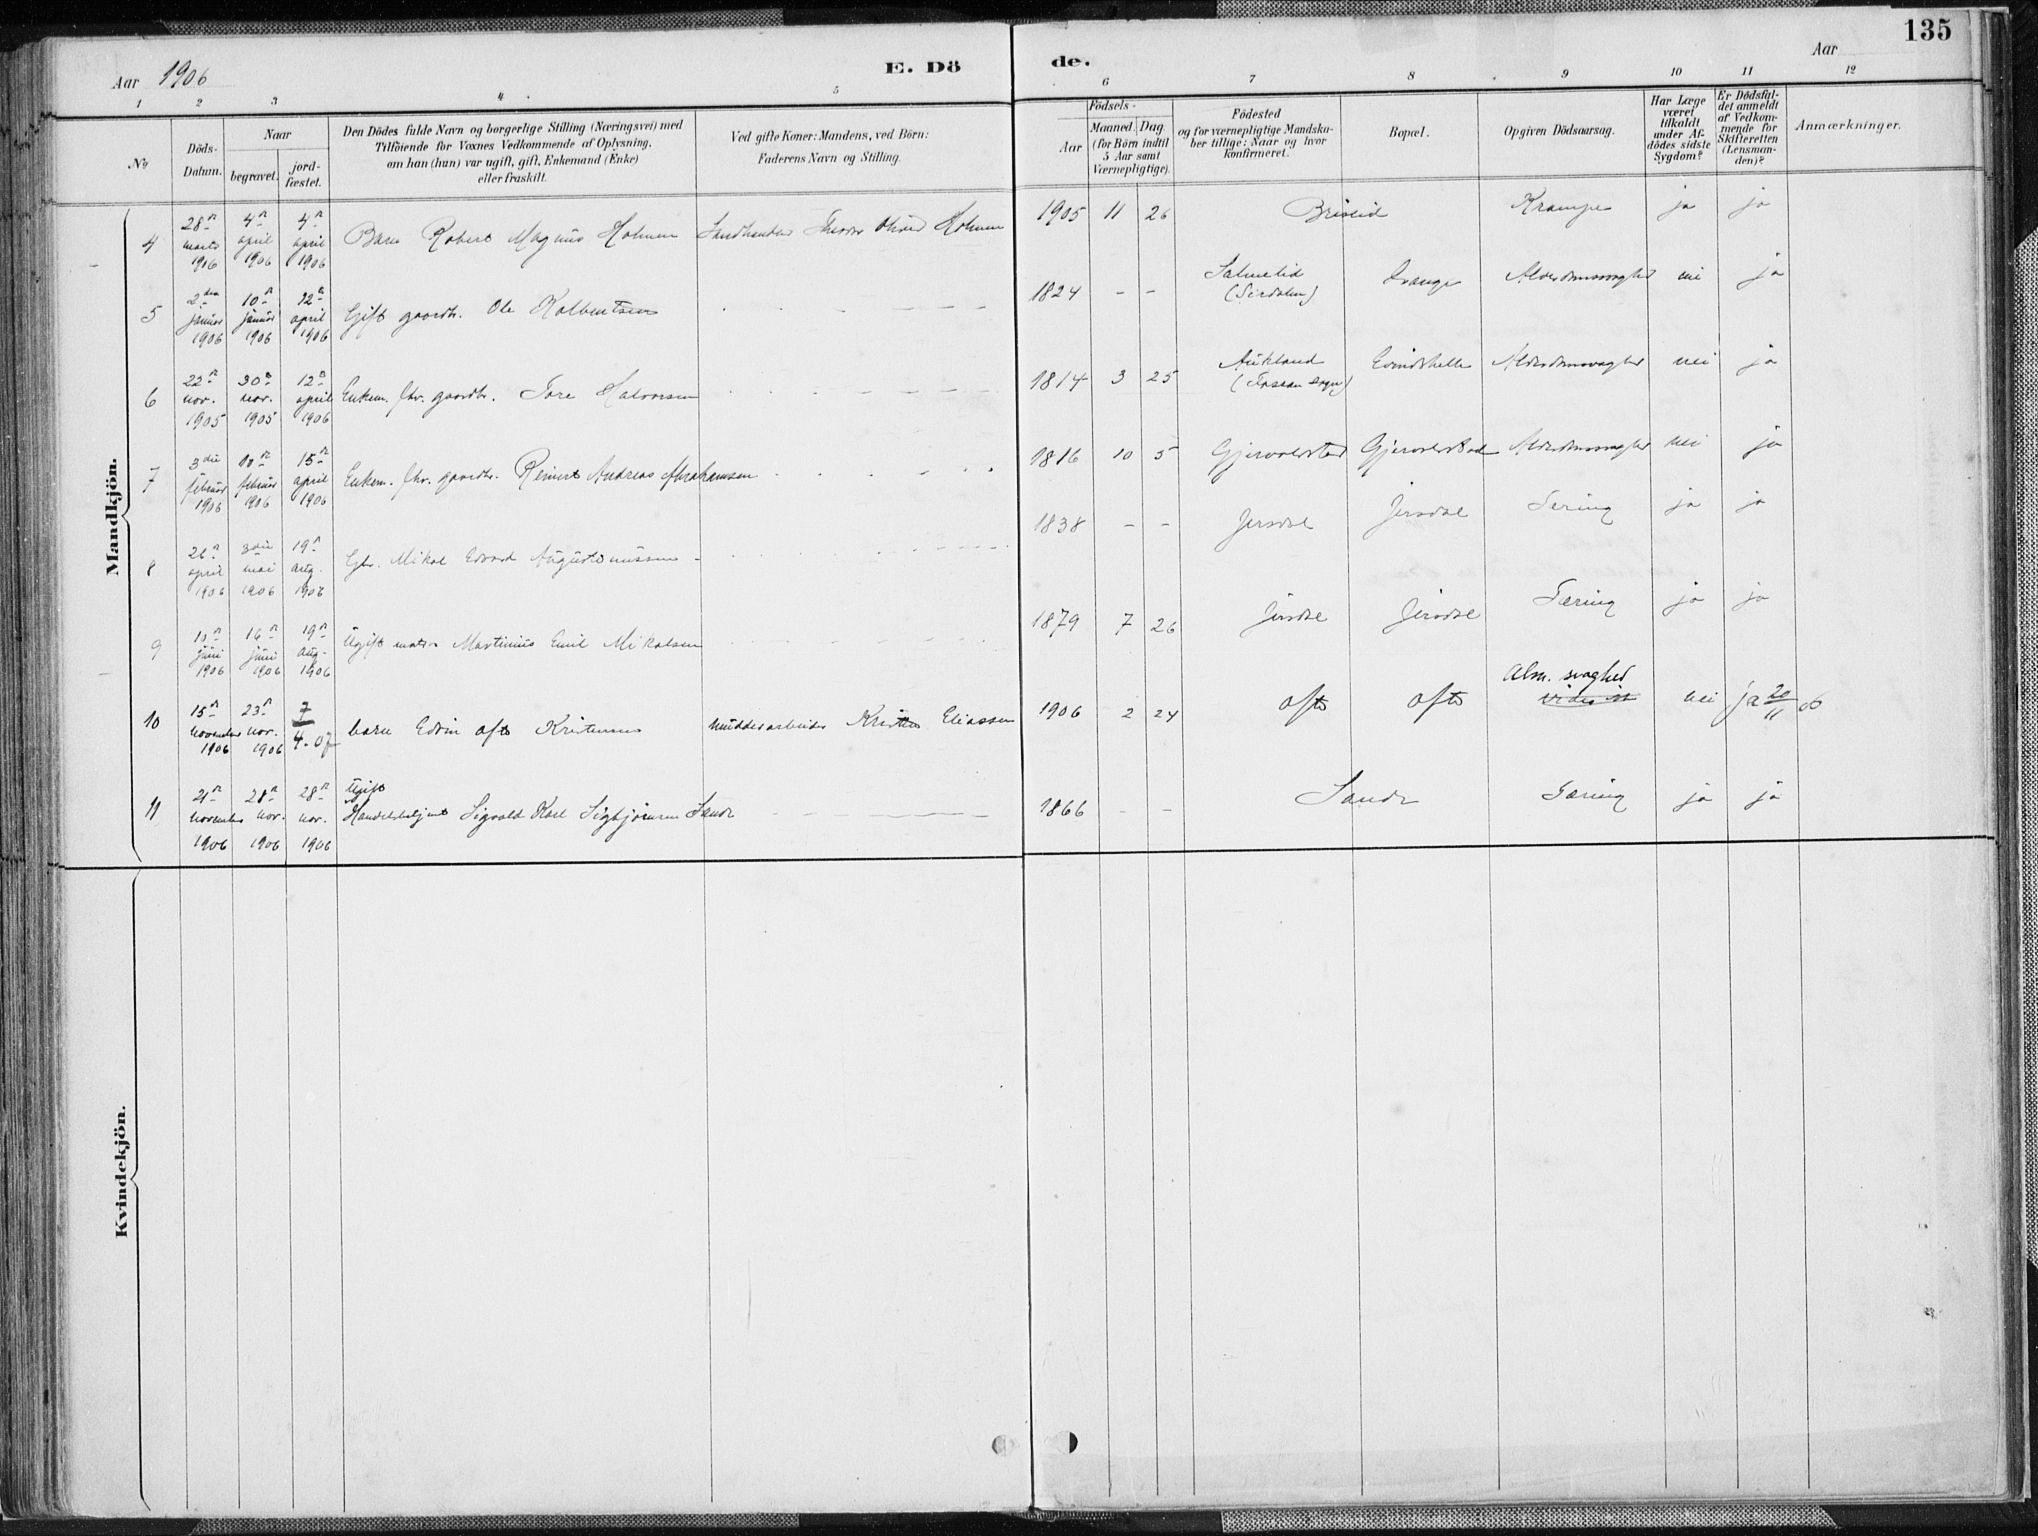 135
Aar 1906
E. Dö
de.
Aar
1 2 3 4 5 6 7 8 9 10 11 12
No
Döds-
Datum.
Naar
begravet.
jord-
fæstet.
Den Dödes fulde Navn og borgerlige Stilling (Næringsvei) med
Tilföiende for Voxnes Vedkommende af Oplysning,
om han (hun) var ugift, gift, Enkemand (Enke)
eller fraskilt.
Ved gifte Koner: Mandens, ved Börn:
Faderens Navn og Stilling.
Födsels-
Aar
Maaned. Dag.
(for Börn indtil
5 Aar samt
Værnepligtige).
Födested
og for værnepligtige Mandska-
ber tillige: Naar og hvor
konfirmeret.
Bopæl.
Opgiven Dödsaarsag.
Har Læge
været
tilkaldt
under Af-
dödes sidste
Sygdom?
Er Dödsfal-
det anmeldt
af Vedkom-
mende for
Skifteretten
(Lensman-
den)?
Anmærkninger.
Mandkjön.
4
28n marts 1906
4n april 1906
4n april 1906
Barn Robert Magnus Holmen
Landhandler Holmen
1905 11 26
Briseid
Krampe
ja
ja
5
2den januar 1906
10n januar 1906
12n april 1906
Gift gaardbr. Ole Kolbentsen
1824 - -
(Sirdalen)
Alderdomssvaghed
nei
ja
6
22n nov. 1905
30n nov. 1905
12n april 1906
Enkem. fhv. gaardbr. Tore Halvorsen
1814 3 25
Aukland
Evindshelle
Alderdomssvaghed
nei
ja
7
3die februar 1906
10n februar 1906
15n april 1906
Enkem. fhv. gaardbr. Reinert Andreas Abrahamsen
1816 10 5
Gjervoldstad
Gjervoldstad
Alderdomssvaghed
nei
ja
8
april 1906
3die mai 1906
19n aug. 1906
Gbr. Mikal Edvard
1838 - -
Jersdal
Jersdal
Tæring
ja
ja
9
juni 1906
16n juni 1906
19n aug. 1906
Ugift matros Martinius Emil Mikalsen
1879 7 26
Jersdal
Jersdal
Tæring
ja
ja
10
15n november 1906
23n nov. 1906
7
4. 07
barn Edvin Ofte Kristensen
mudderarbeider Eliassen
1906 2 24
Ofte
Ofte
Alm. svaghed
nei
ja 20/11 06
11
21n november 1906
28n nov. 1906
28n nov. 1906
Ugift
Handelsbetjent Sigvald Karl Sigbjørnsen Sande
1866 - -
Sande
Tæring
ja
ja
Kvindekjön.